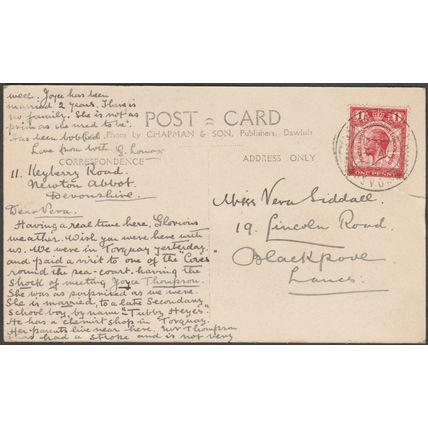 well. Joyce has been
married 2 years. There is
no family. She is not as
prim as she used to be.
Has been bobbed.
Love from with E. Lomax
POST = CARD
Photo by CHAPMAN & SON, Publishers, Dawlish
CORRESPONDENCE
ADDRESS ONLY
11. Heyberry Road.
Newton Abbot.
Devonshire.
Dear Vera.
Having a real time here. Glorious
weather. Wish you were here with
us. We were in Torquay yesterday,
and paid a visit to one of the "Coves
round the sea-coast, having the
shock of meeting Joyce Thompson.
She was as surprised as we were.
She is married, to a late Secondary
School boy, by name "Tubby Heyes".
He has a chemist shop in Torquay.
Her parents live near here. Mr Thompson
has had a stroke and is not very
ONE PENNY
Miss Vera Siddall
19. Lincoln Road.
Blackpool
Lancs.